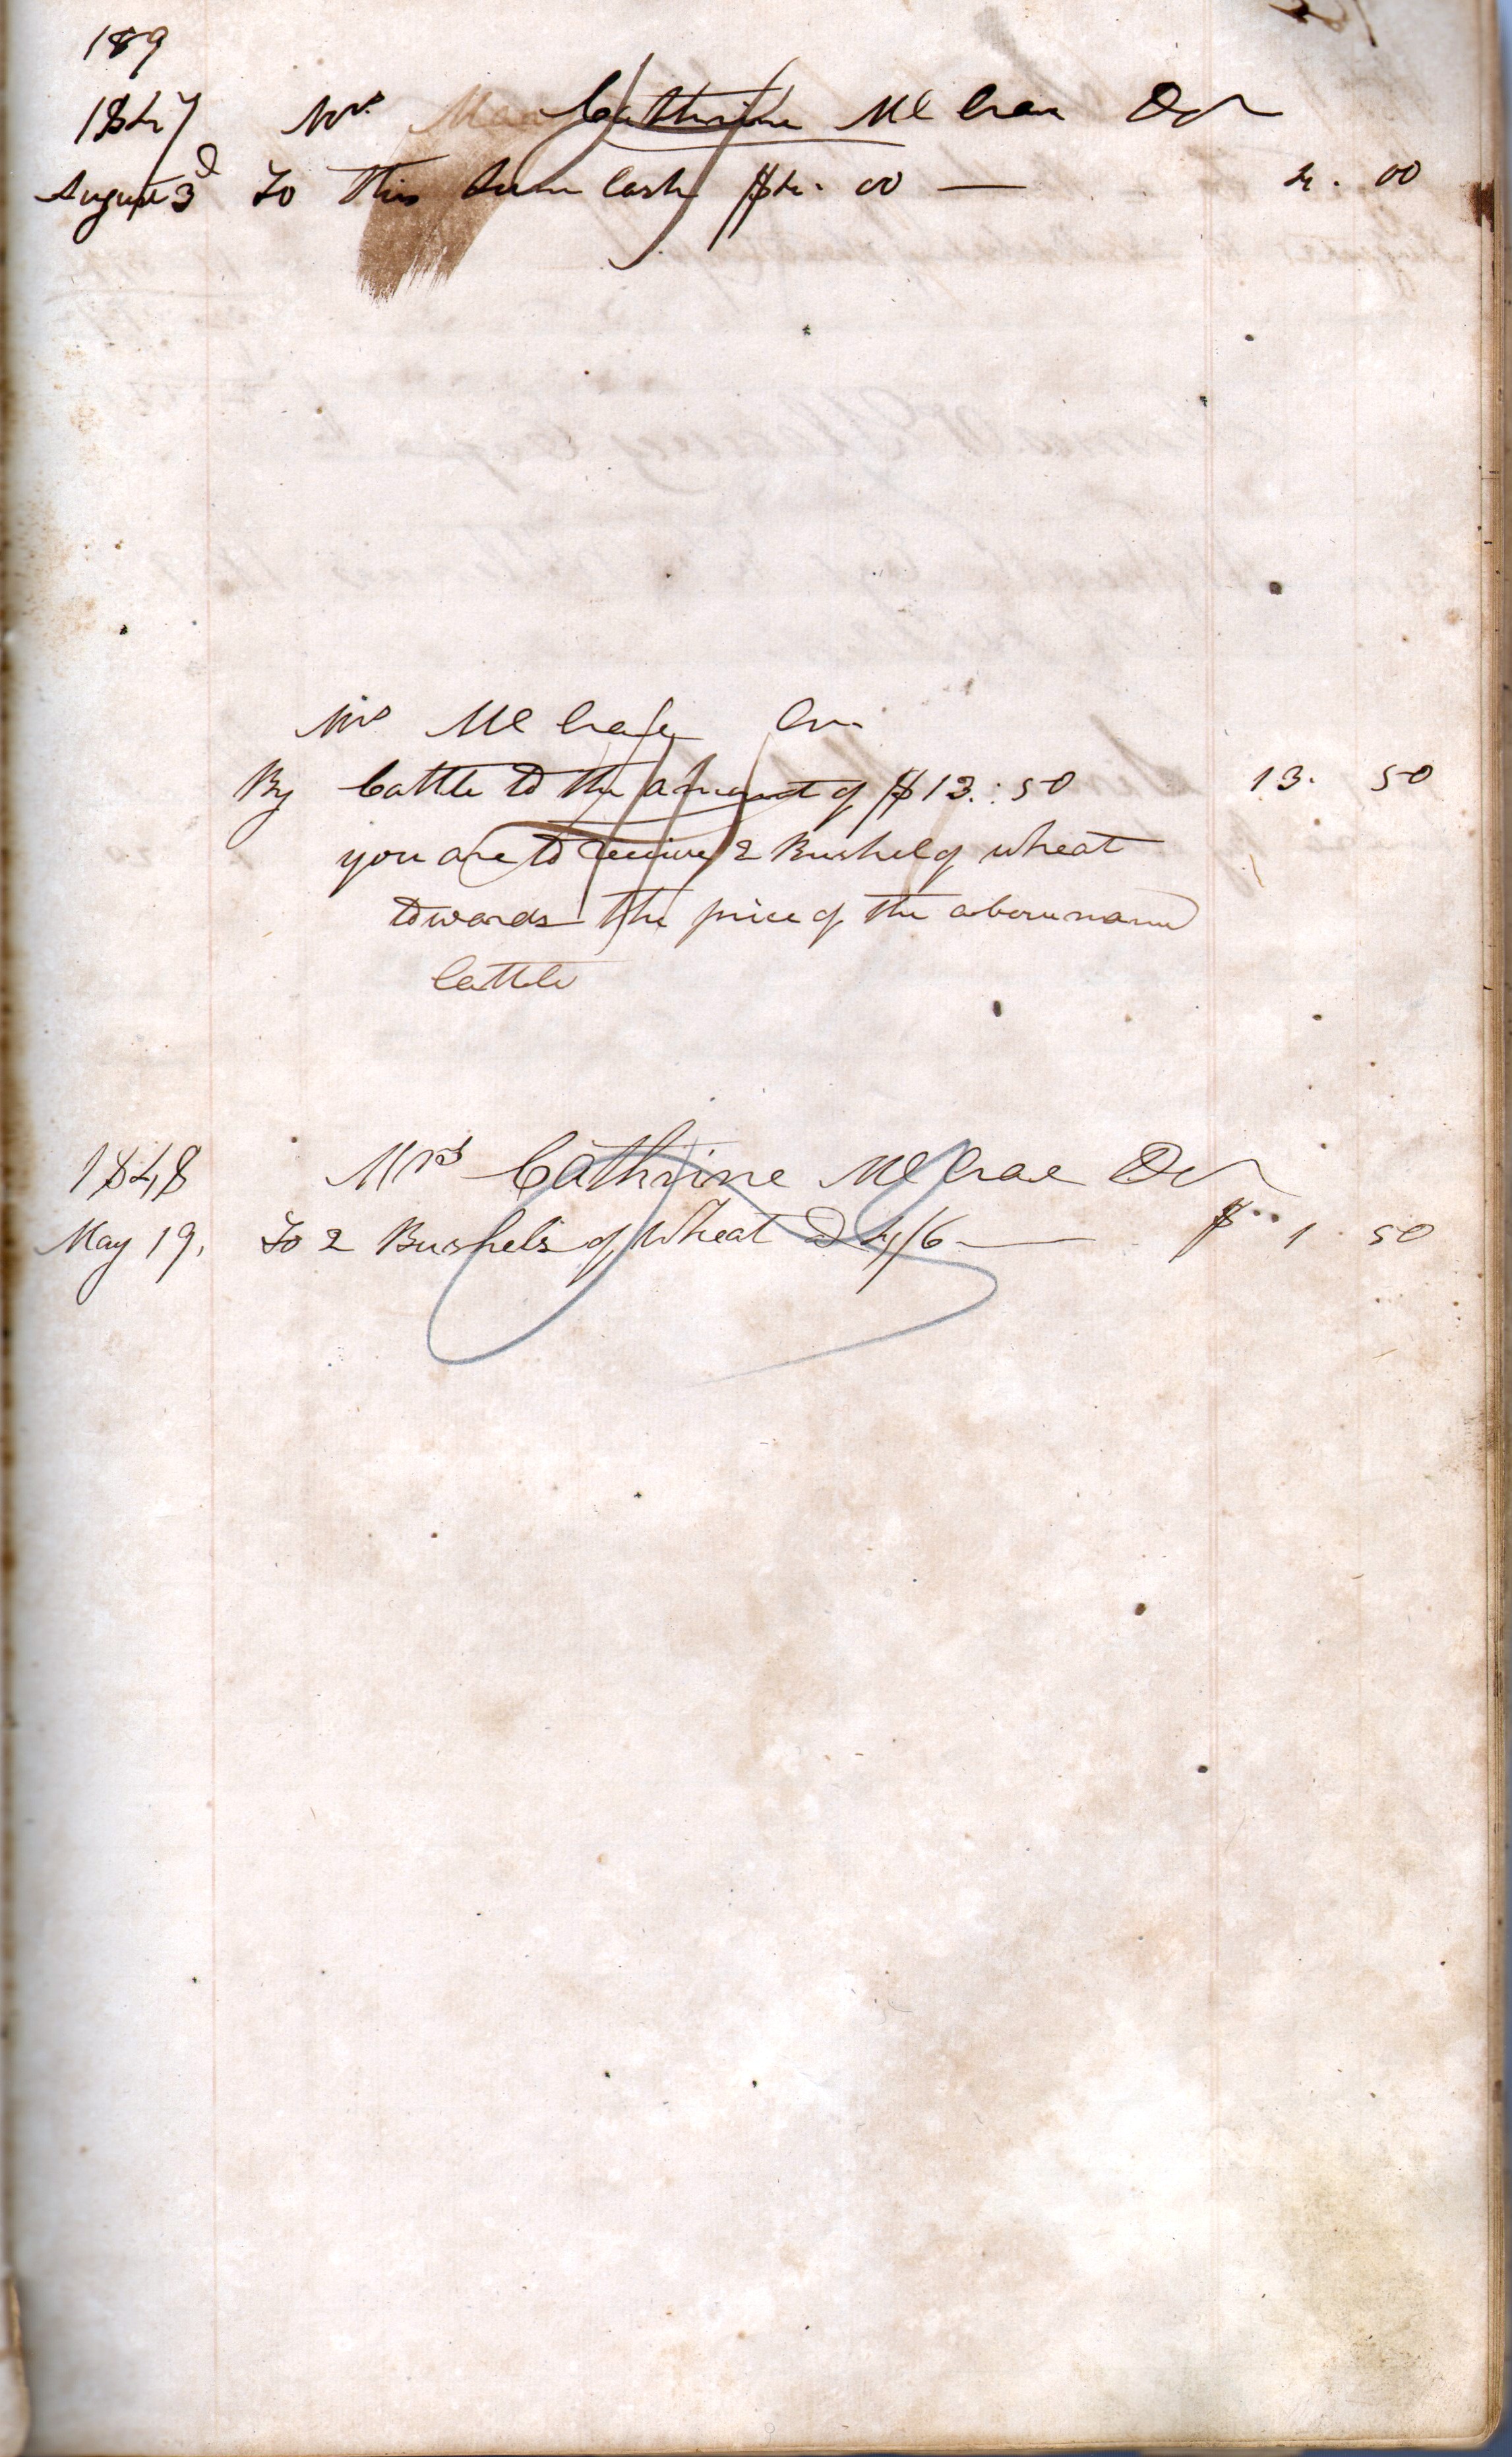 189
1847 Mrs Cathrine McCrae Dr
August 3d To this Sum Cash $4.00 — 4.00
Mrs McCrae Cr.
By Cattle to the amount of $13.:50 13.50
you are to receive 2 Bushel of wheat
towards the price of the above name
Cattle
1848 Mrs Cathrine McCrae Dr
May 19, To 2 Bushels of Wheat @ 4/6 — $ 1.50